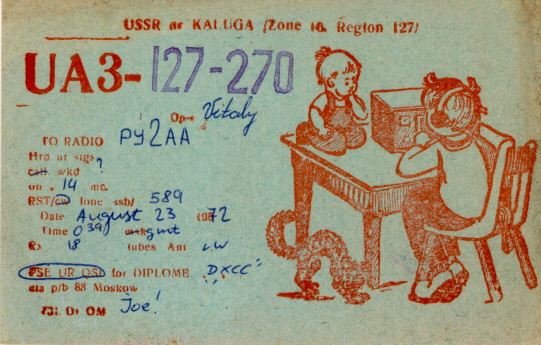 USSR nr KALUGA /Zone 16. Region 127/
UA3-127-270
Op-r Vitaly
TO RADIO PY2AA
Hrd ur sigs ?
call wkd
on . 14 mc.
RST/cw fone ssb/ 589
Date August 23 1972
Time 0039 msk gmt
Rx 18 tubes Ant LW
PSE UR QSL for DIPLOME "DXCC"
via p/b 88 Moskow
73! Dr OM Joe!